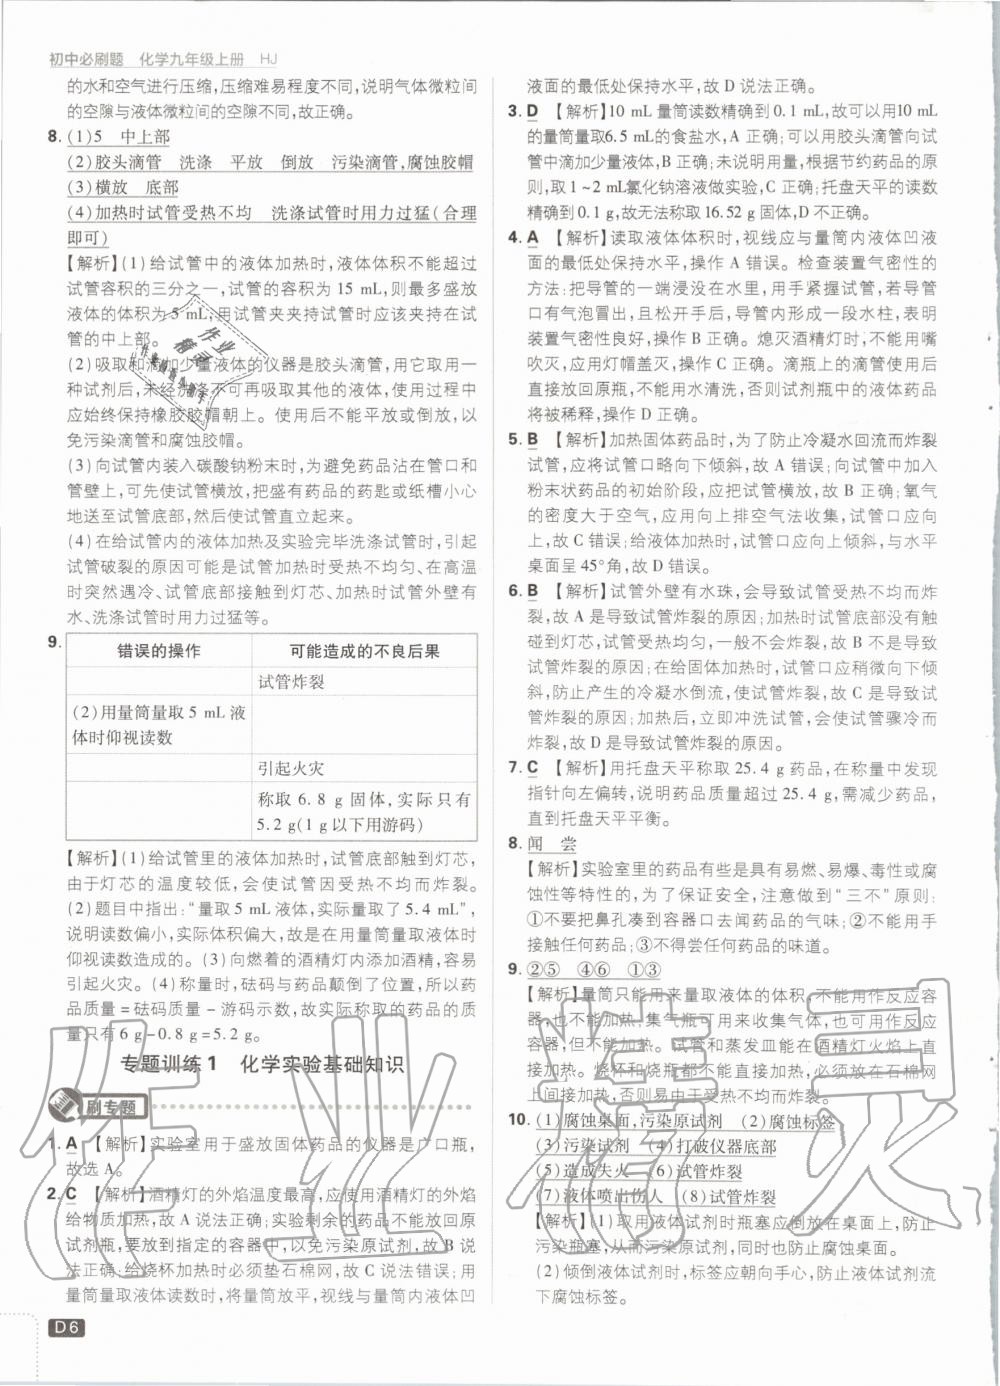 初中必刷题 化学九年级上册 HJ
的水和空气进行压缩,压缩难易程度不同,说明气体微粒间
的空隙与液体微粒间的空隙不同,故正确。
8. (1)5 中上部
(2)胶头滴管 洗涤 平放 倒放 污染滴管,腐蚀胶帽
(3)横放 底部
(4)加热时试管受热不均 洗涤试管时用力过猛(合理
即可)
【解析】(1)给试管中的液体加热时,液体体积不能超过
试管容积的三分之一,试管的容积为 15 mL,则最多盛放
液体的体积为 5 mL,用试管夹夹持试管时应该夹持在试
管的中上部。
(2)吸取和滴加少量液体的仪器是胶头滴管,用它取用一
种试剂后,未经洗涤不可再吸取其他的液体,使用过程中
应始终保持橡胶胶帽朝上。使用后不能平放或倒放,以
免污染滴管和腐蚀胶帽。
(3)向试管内装入碳酸钠粉末时,为避免药品沾在管口和
管壁上,可先使试管横放,把盛有药品的药匙或纸槽小心
地送至试管底部,然后使试管直立起来。
(4)在给试管内的液体加热及实验完毕洗涤试管时,引起
试管破裂的原因可能是试管加热时受热不均匀、在高温
时突然遇冷、试管底部接触到灯芯、加热时试管外壁有
水、洗涤试管时用力过猛等。
9. 错误的操作 可能造成的不良后果
试管炸裂
(2)用量筒量取 5 mL 液
体时仰视读数
引起火灾
称取 6.8 g 固体,实际只有
5.2 g(1 g 以下用游码)
【解析】(1)给试管里的液体加热时,试管底部触到灯芯,
由于灯芯的温度较低,会使试管因受热不均而炸裂。
(2)题目中指出:“量取 5 mL 液体,实际量取了 5.4 mL”,
说明读数偏小,实际体积偏大,故是在用量筒量取液体时
仰视读数造成的。(3)向燃着的酒精灯内添加酒精,容易
引起火灾。(4)称量时,砝码与药品颠倒了位置,所以药
品质量=砝码质量-游码示数,故实际称取的药品的质
量只有 6 g-0.8 g=5.2 g。
专题训练 1 化学实验基础知识
刷专题
1. A 【解析】实验室用于盛放固体药品的仪器是广口瓶,
故选 A。
2. C 【解析】酒精灯的外焰温度最高,应使用酒精灯的外焰
给物质加热,故 A 说法正确;实验剩余的药品不能放回原
试剂瓶,要放到指定的容器中,以免污染原试剂,故 B 说
法正确;给烧杯加热时必须垫石棉网,故 C 说法错误;用
量筒量取液体读数时,将量筒放平,视线与量筒内液体凹
D6
液面的最低处保持水平,故 D 说法正确。
3. D 【解析】10 mL 量筒读数精确到 0.1 mL,故可以用10 mL
的量筒量取6.5 mL的食盐水,A 正确;可以用胶头滴管向试
管中滴加少量液体,B 正确;未说明用量,根据节约药品的原
则,取 1~2 mL氯化钠溶液做实验,C 正确;托盘天平的读数
精确到 0.1 g,故无法称取 16.52 g 固体,D 不正确。
4. A 【解析】读取液体体积时,视线应与量筒内液体凹液
面的最低处保持水平,操作 A 错误。检查装置气密性的
方法:把导管的一端浸没在水里,用手紧握试管,若导管
口有气泡冒出,且松开手后,导管内形成一段水柱,表明
装置气密性良好,操作 B 正确。熄灭酒精灯时,不能用嘴
吹灭,应用灯帽盖灭,操作 C 正确。滴瓶上的滴管使用后
直接放回原瓶,不能用水清洗,否则试剂瓶中的液体药品
将被稀释,操作 D 正确。
5. B 【解析】加热固体药品时,为了防止冷凝水回流而炸裂
试管,应将试管口略向下倾斜,故 A 错误;向试管中加入
粉末状药品的初始阶段,应把试管横放,故 B 正确;氧气
的密度大于空气,应用向上排空气法收集,试管口应向
上,故 C 错误;给液体加热时,试管口应向上倾斜,与水平
桌面呈 45°角,故 D 错误。
6. B 【解析】试管外壁有水珠,会导致试管受热不均而炸
裂,故 A 是导致试管炸裂的原因;加热时试管底部没有触
碰到灯芯,试管受热均匀,一般不会炸裂,故 B 不是导致
试管炸裂的原因;在给固体加热时,试管口应稍微向下倾
斜,防止产生的冷凝水倒流,使试管炸裂,故 C 是导致试
管炸裂的原因;加热后,立即冲洗试管,会使试管骤冷而
炸裂,故 D 是导致试管炸裂的原因。
7. C 【解析】用托盘天平称取 25.4 g 药品,在称量中发现
指针向左偏转,说明药品质量超过 25.4 g,需减少药品,
直到托盘天平平衡。
8. 闻 尝
【解析】实验室里的药品有些是具有易燃、易爆、毒性或腐
蚀性等特性的,为了保证安全,注意做到“三不”原则:
①不要把鼻孔凑到容器口去闻药品的气味;②不能用手
接触任何药品;③不得尝任何药品的味道。
9. ②⑤ ④⑥ ①③
【解析】量筒只能用来量取液体的体积,不能用作反应容
器,也不能加热;集气瓶可用来收集气体,也可用作反应
容器,但不能加热。试管和蒸发皿能在酒精灯火焰上直
接加热。烧杯和烧瓶都不能直接加热,必须放在石棉网
上间接加热,否则易由于受热不均而炸裂。
10. (1)腐蚀桌面,污染原试剂 (2)腐蚀标签
(3)污染试剂 (4)打破仪器底部
(5)造成失火 (6)试管炸裂
(7)液体喷出伤人 (8)试管炸裂
【解析】(1)取用液体试剂时瓶塞应倒放在桌面上,防止
污染瓶塞,从而污染试剂,同时也防止腐蚀桌面。
(2)倾倒液体试剂时,标签应朝向手心,防止液体试剂流
下腐蚀标签。
作业精灵